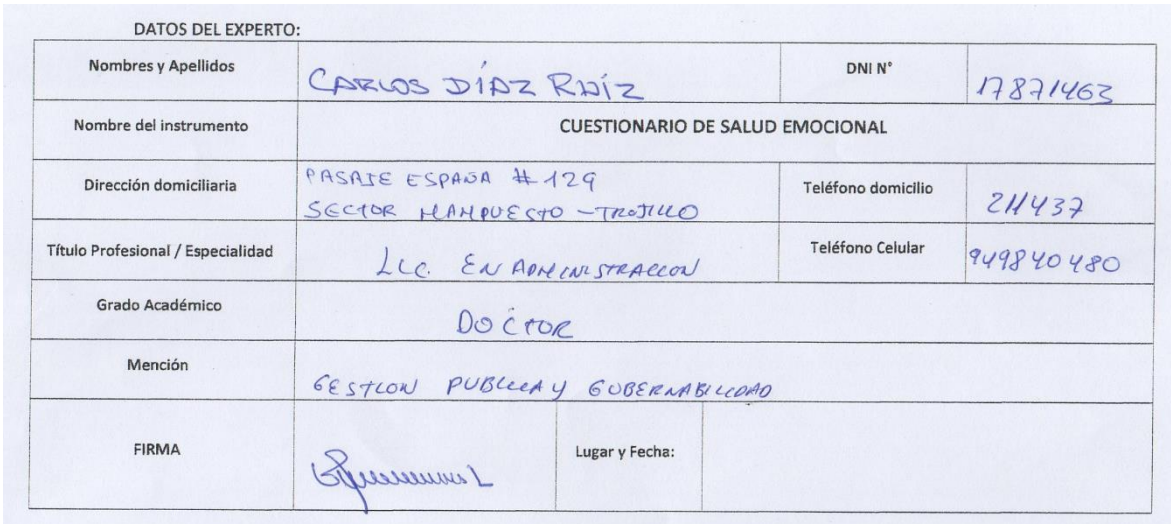 DATOS DEL EXPERTO:
Nombres y Apellidos CARLOS DÍAZ RUÍZ DNI N° 17871463
Nombre del instrumento CUESTIONARIO DE SALUD EMOCIONAL
Dirección domiciliaria PASAJE ESPAÑA # 129
SECTOR MAMPUESTO - TRUJILLO Teléfono domicilio 211437
Título Profesional / Especialidad LIC. EN ADMINISTRACION Teléfono Celular 949840480
Grado Académico DOCTOR
Mención GESTION PUBLICA Y GUBERNABILIDAD
FIRMA Lugar y Fecha: